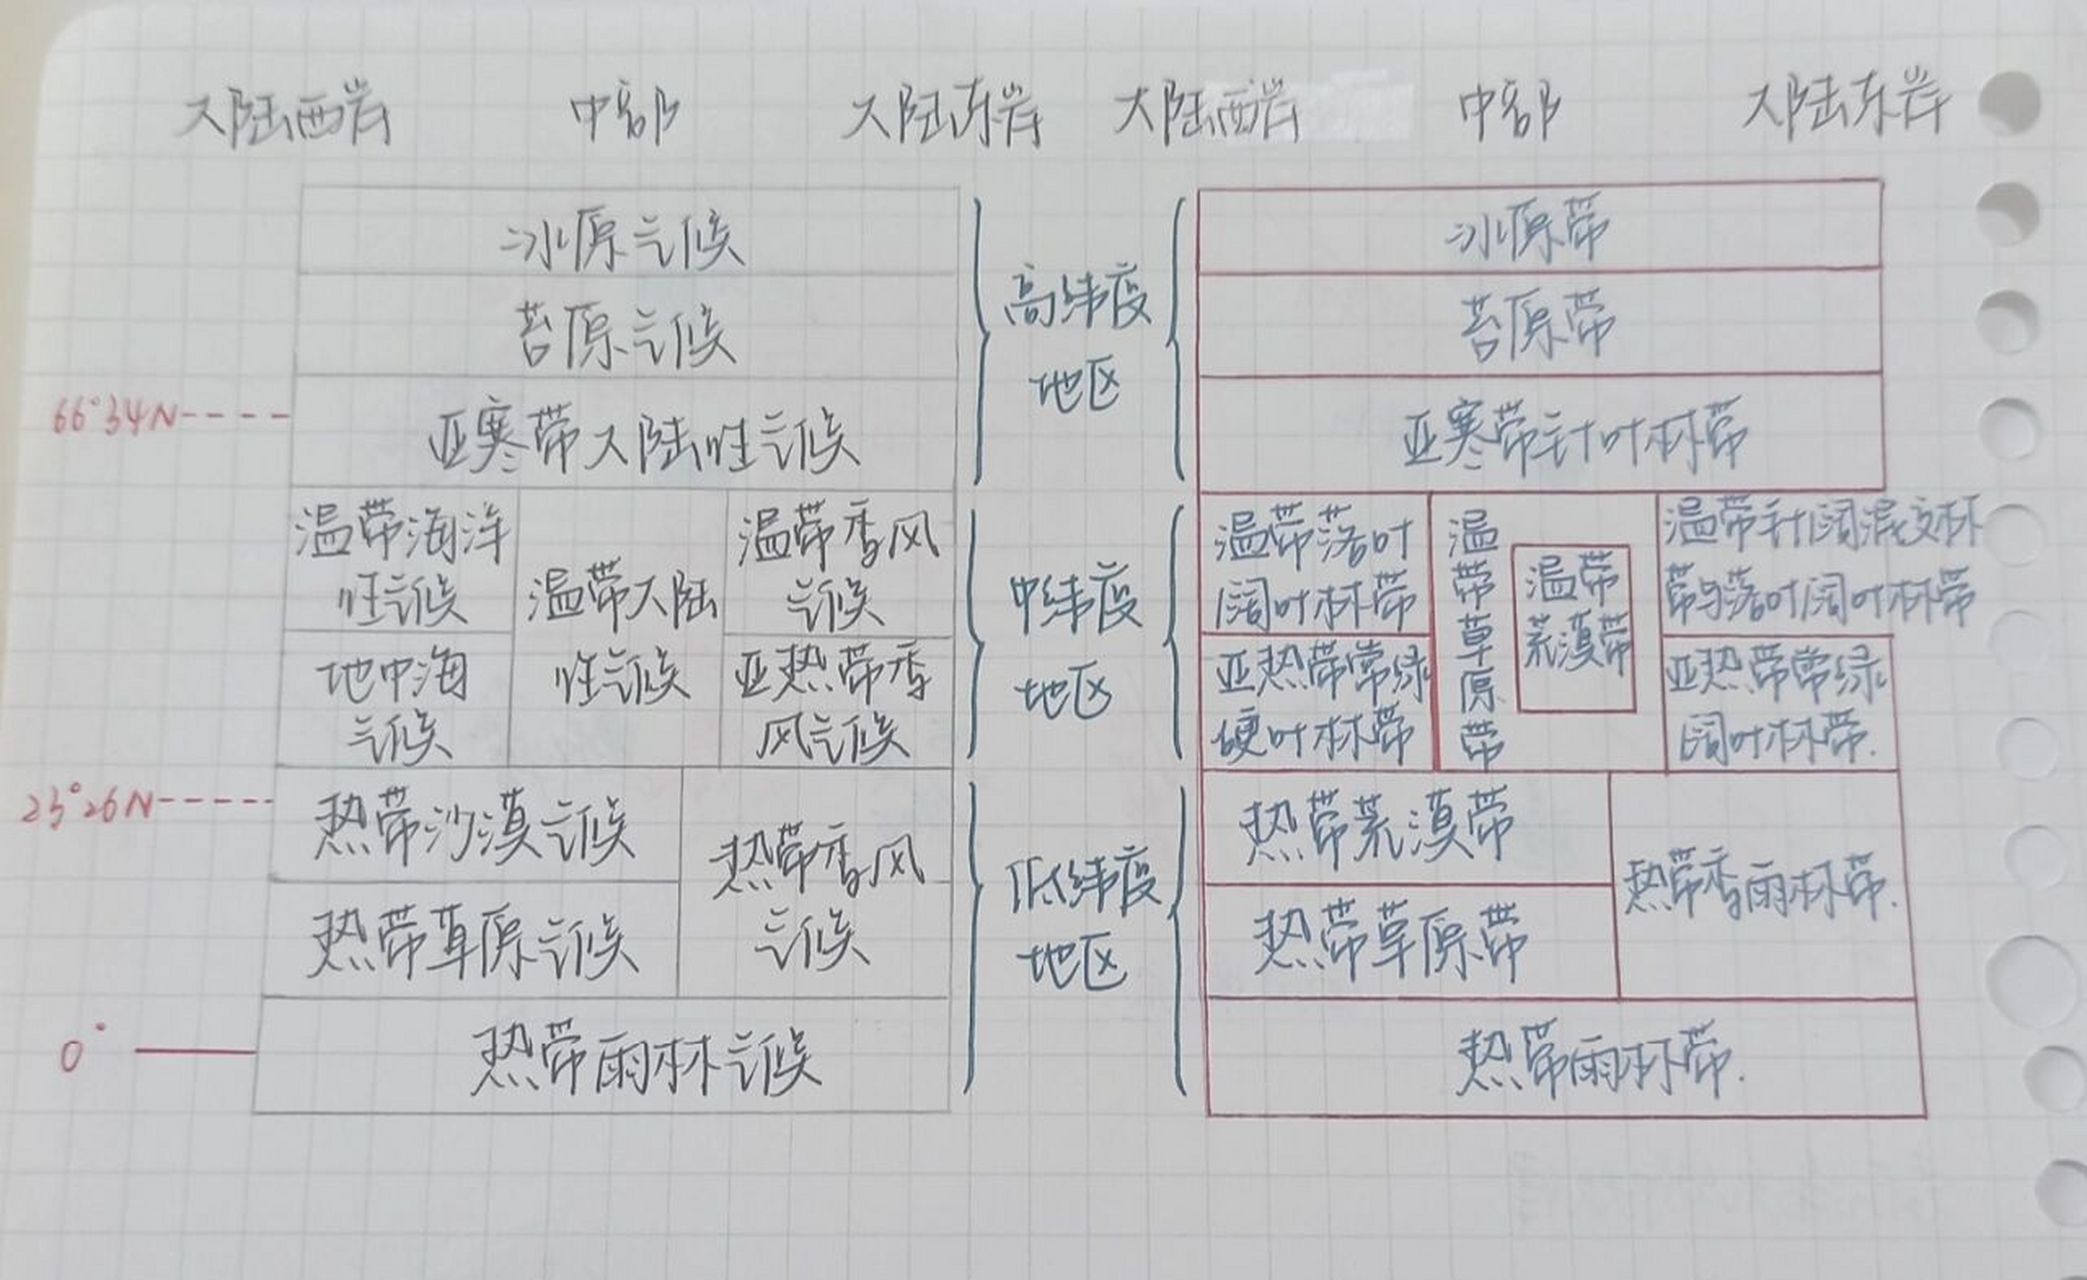 大陆西岸 中部 大陆东岸 大陆西岸 中部 大陆东岸
冰原气候
苔原气候
66°34N
亚寒带大陆性气候
温带海洋
性气候
地中海
气候
温带大陆
性气候
温带季风
气候
亚热带季
风气候
23°26N
热带沙漠气候
热带草原气候
热带季风
气候
0°
热带雨林气候
高纬度
地区
中纬度
地区
低纬度
地区
冰原带
苔原带
亚寒带针叶林带
温带落叶
阔叶林带
亚热带常绿
硬叶林带
温带草原带
温带
荒漠带
温带针阔混交林
带与落叶阔叶林带
亚热带常绿
阔叶林带.
热带荒漠带
热带草原带
热带季雨林带.
热带雨林带.